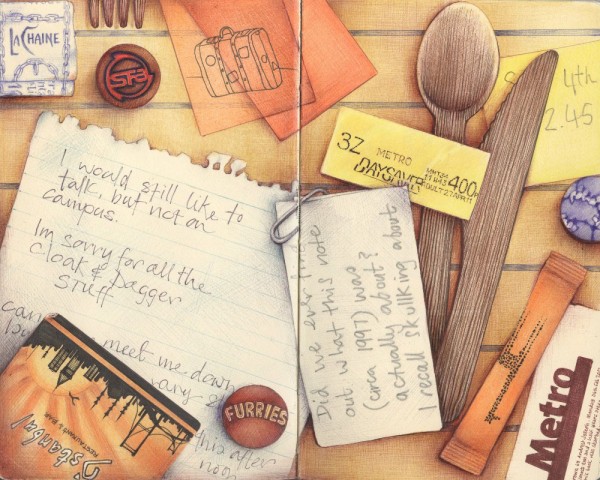 LA CHAINE
SF3
4th
2.45
3Z METRO
DAYSAVER
400
I would still like to
talk, but not on
campus.
Im sorry for all the
Cloak & Dagger
Stuff
can
meet me down
this after
noon
Did we ever
out what this note
(circa 1997) was
actually about?
I recall skullking about
FURRIES
istanbul
Metro